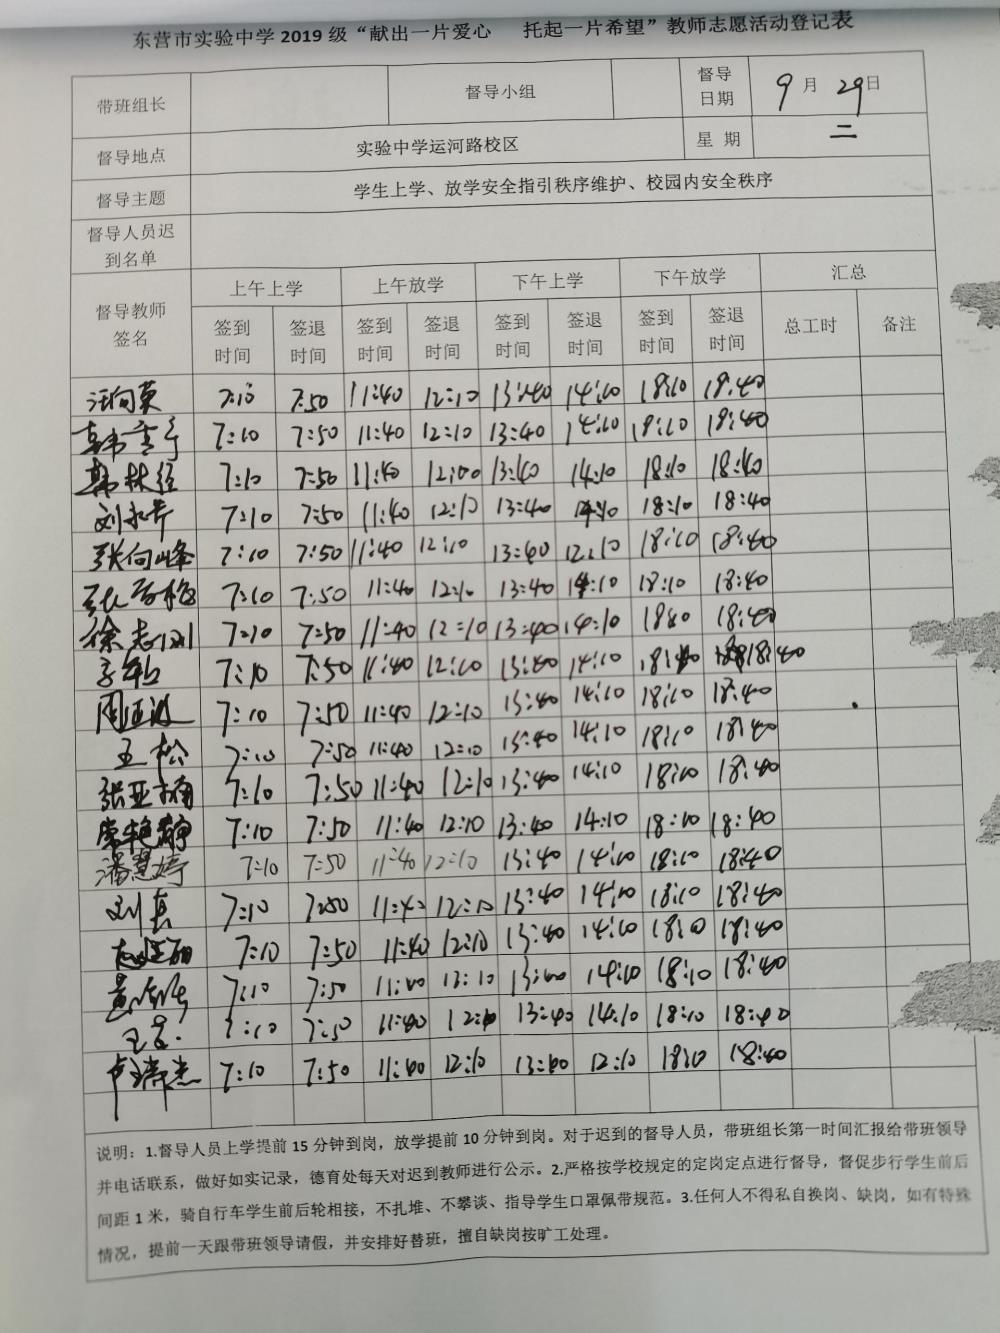 东营市实验中学2019级“献出一片爱心 托起一片希望”教师志愿活动登记表
带班组长 督导小组 督导日期 9月29日
督导地点 实验中学运河路校区 星期 二
督导主题 学生上学、放学安全指引秩序维护、校园内安全秩序
督导人员迟到名单
督导教师签名 上午上学 上午放学 下午上学 下午放学 汇总
签到时间 签退时间 签到时间 签退时间 签到时间 签退时间 签到时间 签退时间 总工时 备注
汪向英 7:10 7:50 11:40 12:10 13:40 14:10 18:10 18:40
7:10 7:50 11:40 12:10 13:40 14:10 18:10 18:40
韩林经 7:10 7:50 11:40 12:00 13:40 14:10 18:10 18:40
刘永芹 7:10 7:50 11:40 12:10 13:40 14:10 18:10 18:40
张向峰 7:10 7:50 11:40 12:10 13:40 12:10 18:10 18:40
7:10 7:50 11:40 12:10 13:40 14:10 18:10 18:40
徐志刚 7:10 7:50 11:40 12:10 13:40 14:10 18:40
7:10 7:50 11:40 12:10 13:40 14:10 18:10 18:40
周亚波 7:10 7:50 11:40 12:10 13:40 14:10 18:10 18:40
王松 7:10 7:50 11:40 12:10 13:40 14:10 18:10 18:40
张亚楠 7:10 7:50 11:40 12:10 13:40 14:10 18:10 18:40
常艳静 7:10 7:50 11:40 12:10 13:40 14:10 18:10 18:40
潘慧婷 7:10 7:50 11:40 12:10 13:40 14:10 18:10 18:40
刘真 7:10 7:50 11:40 12:10 13:40 14:10 18:10 18:40
7:10 7:50 11:40 12:10 13:40 14:10 18:10 18:40
7:10 7:50 11:40 13:10 13:40 14:10 18:10 18:40
7:10 7:50 11:40 12:10 13:40 14:10 18:10 18:40
卢瑞杰 7:10 7:50 11:40 12:10 13:40 12:10 18:10 18:40
说明：1.督导人员上学提前15分钟到岗，放学提前10分钟到岗。对于迟到的督导人员，带班组长第一时间汇报给带班领导
并电话联系，做好如实记录，德育处每天对迟到教师进行公示。2.严格按学校规定的定岗定点进行督导，督促步行学生前后
间距1米，骑自行车学生前后轮相接，不扎堆、不攀谈、指导学生口罩佩带规范。3.任何人不得私自换岗、缺岗，如有特殊
情况，提前一天跟带班领导请假，并安排好替班，擅自缺岗按旷工处理。